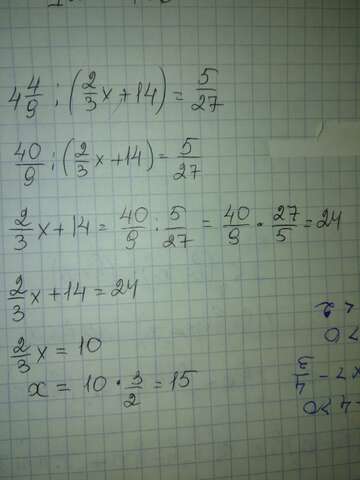 4 4/9 : (2/3 x + 14) = 5/27
40/9 : (2/3 x + 14) = 5/27
2/3 x + 14 = 40/9 : 5/27 = 40/9 · 27/5 = 24
2/3 x + 14 = 24
2/3 x = 10
x = 10 · 3/2 = 15